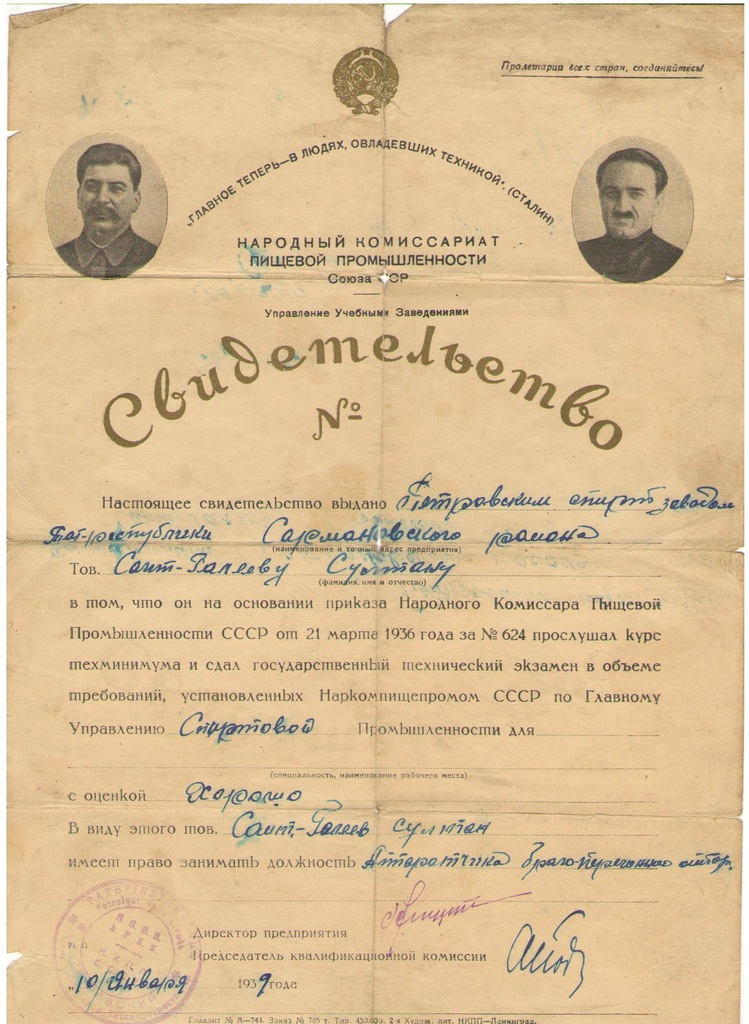 Пролетарии всех стран, соединяйтесь!
„ГЛАВНОЕ ТЕПЕРЬ—В ЛЮДЯХ, ОВЛАДЕВШИХ ТЕХНИКОЙ“. (СТАЛИН)
НАРОДНЫЙ КОМИССАРИАТ
ПИЩЕВОЙ ПРОМЫШЛЕННОСТИ
Союза ССР
Управление Учебными Заведениями
Свидетельство
№
Настоящее свидетельство выдано Петровским спирт заводом
Тат-республики Сармановского района
(наименование и точный адрес предприятия)
Тов. Саит-Галееву Султану
(фамилия, имя и отчество)
в том, что он на основании приказа Народного Комиссара Пищевой
Промышленности СССР от 21 марта 1936 года за № 624 прослушал курс
техминимума и сдал государственный технический экзамен в объеме
требований, установленных Наркомпищепромом СССР по Главному
Управлению Спиртовой Промышленности для
(специальность, наименование рабочего места)
с оценкой Хорошо
В виду этого тов. Саит-Галеев султан
имеет право занимать должность Аппаратчика
Директор предприятия
М. П. Председатель квалификационной комиссии
„10 Января 1939 года
Главлит № А—744. Заказ № 785 т. Тир. 2-я Худож. лит. НКПП—Ленинград.